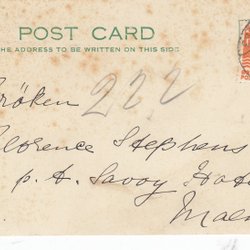 POST CARD
THE ADDRESS TO BE WRITTEN ON THIS SIDE
Fröken
222
Florence Stephens
p. t. Savoy Hot
Malm